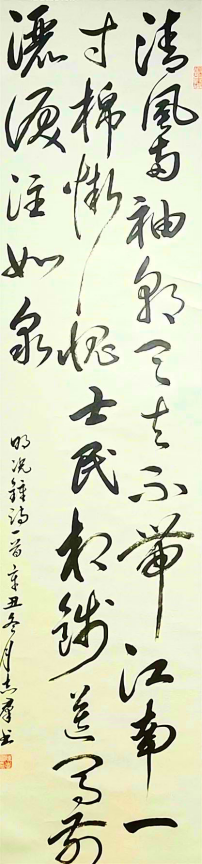 清風两袖朝天去不帶江南一
寸棉慚愧士民相餞送馬前
灑淚注如泉
明况鍾詩一首辛丑冬月志群书